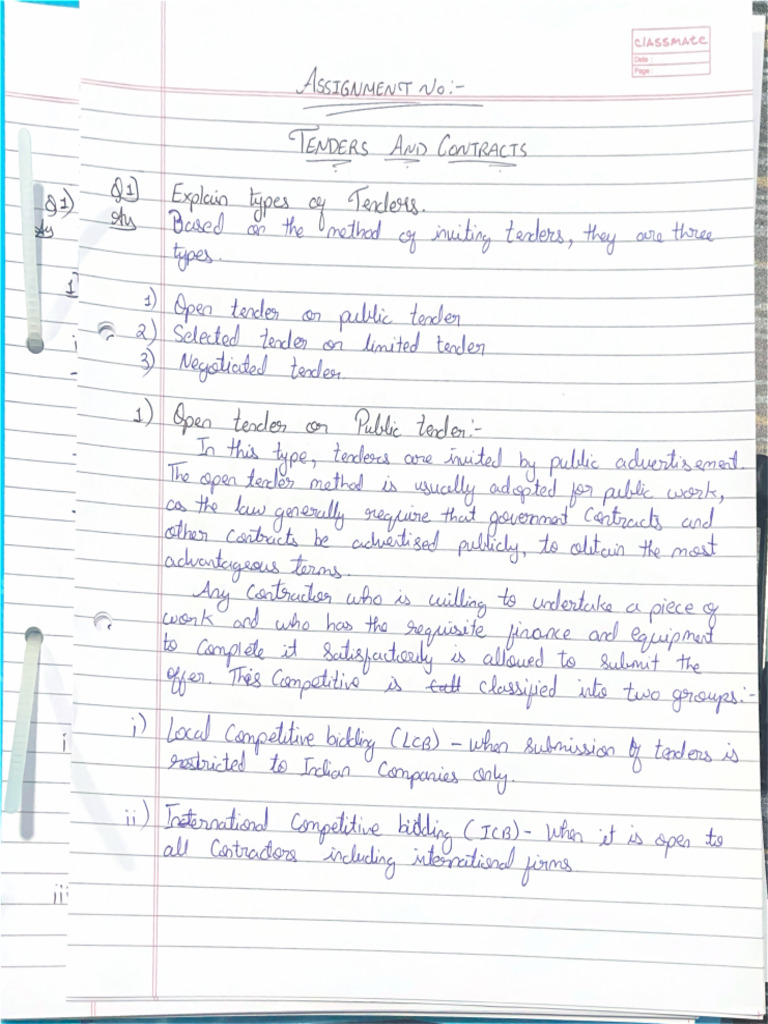 classmate
Date :
Page :
ASSIGNMENT No:-
TENDERS AND CONTRACTS
Q1] Explain types of Tenders.
Ans Based on the method of inviting tenders, they are three
types.
1) Open tender or public tender
2) Selected tender or limited tender
3) Negotiated tender.
1) Open tender or Public tender:-
In this type, tenders are invited by public advertisement.
The open tender method is usually adopted for public work,
as the law generally require that government Contracts and
other contracts be advertised publicly, to obtain the most
advantageous terms.
Any Contractor who is willing to undertake a piece of
work and who has the requisite finance and equipment
to complete it satisfactorily is allowed to submit the
offer. This Competitive is classified into two groups:-
i) Local Competitive bidding (LCB) - when submission of tenders is
restricted to Indian Companies only.
ii) International Competitive bidding (ICB) - When it is open to
all Contractors including international firms
Q1)
1]
i
-
i
-
iii